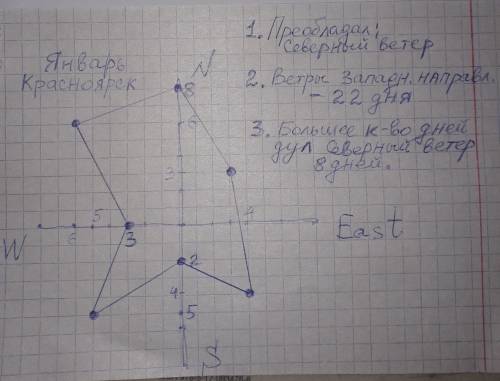 Январь
Красноярск
N
1. Преобладал:
Северный ветер
2. Ветры Западн. направл.
- 22 дня
3. Большее к-во дней
дул Северный ветер
8 дней.
8
6
3
W
6
5
3
4
East
2
4
5
S